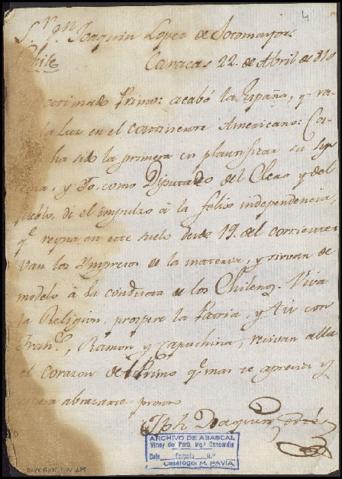 Sr. Dn. Joaquin Lopez de Sotomayor.
Chile
Caracas 22 de Abril de 810
estimado Primo: acabó la España, y
la luz en el continente Americano: Ca
ha sido la primera en plantificar su sys
tema, y Yo, como Diputado del Clero y del
Pueblo, di el impulso á la feliz independencia,
qe. reyna en este suelo desde 19. del corriente:
Van los Impresos de la materia, y sirvan de
modelo á la conducta de los Chilenos. Viva
la Religion, prospere la Patria, y tu con
Franco., Ramon y Capuchina, recivan alla
el corazon de Primo qe. mas te aprecia y
abrazarte pronto
Jph Joaquin Cortés
ARCHIVO DE ABASCAL
Virrey del Perú, Mqs Concordia
Catálogo M. PAVIA